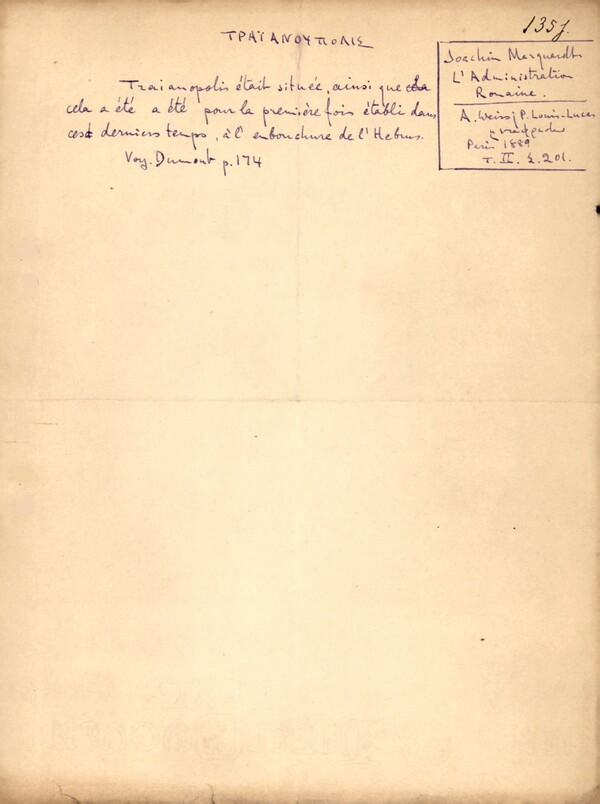 135
ΤΡΑΪΑΝΟΥΠΟΛΙΣ
Joachim Marquardt
L'Administration
Romaine.
A. Weiss, P. Louis-Lucas
Paris 1889
T. II. σ. 201.
Traianopolis était située, ainsi que
cela a été a été pour la première fois établi dans
ces derniers temps, à l'embouchure de l'Hebrus.
Voy. Dumont p. 174